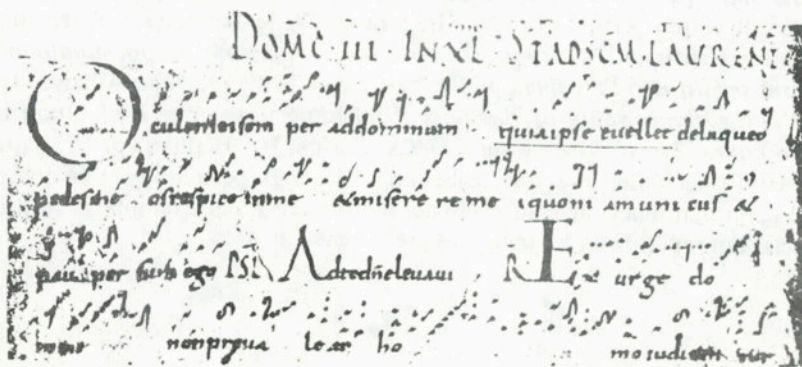 DOM̄C · III · IN XL · STAD SC̄M · LAURENT
Oculi mei sem per ad dominum quia ipse euellet de laqueo
pedes meos respice in me & miserere me i quoniam unicus &
pauper sum ego PSL Ad te dn̄e leuaui R Ex urge do
mine non preua leat ho mo iudicen tur